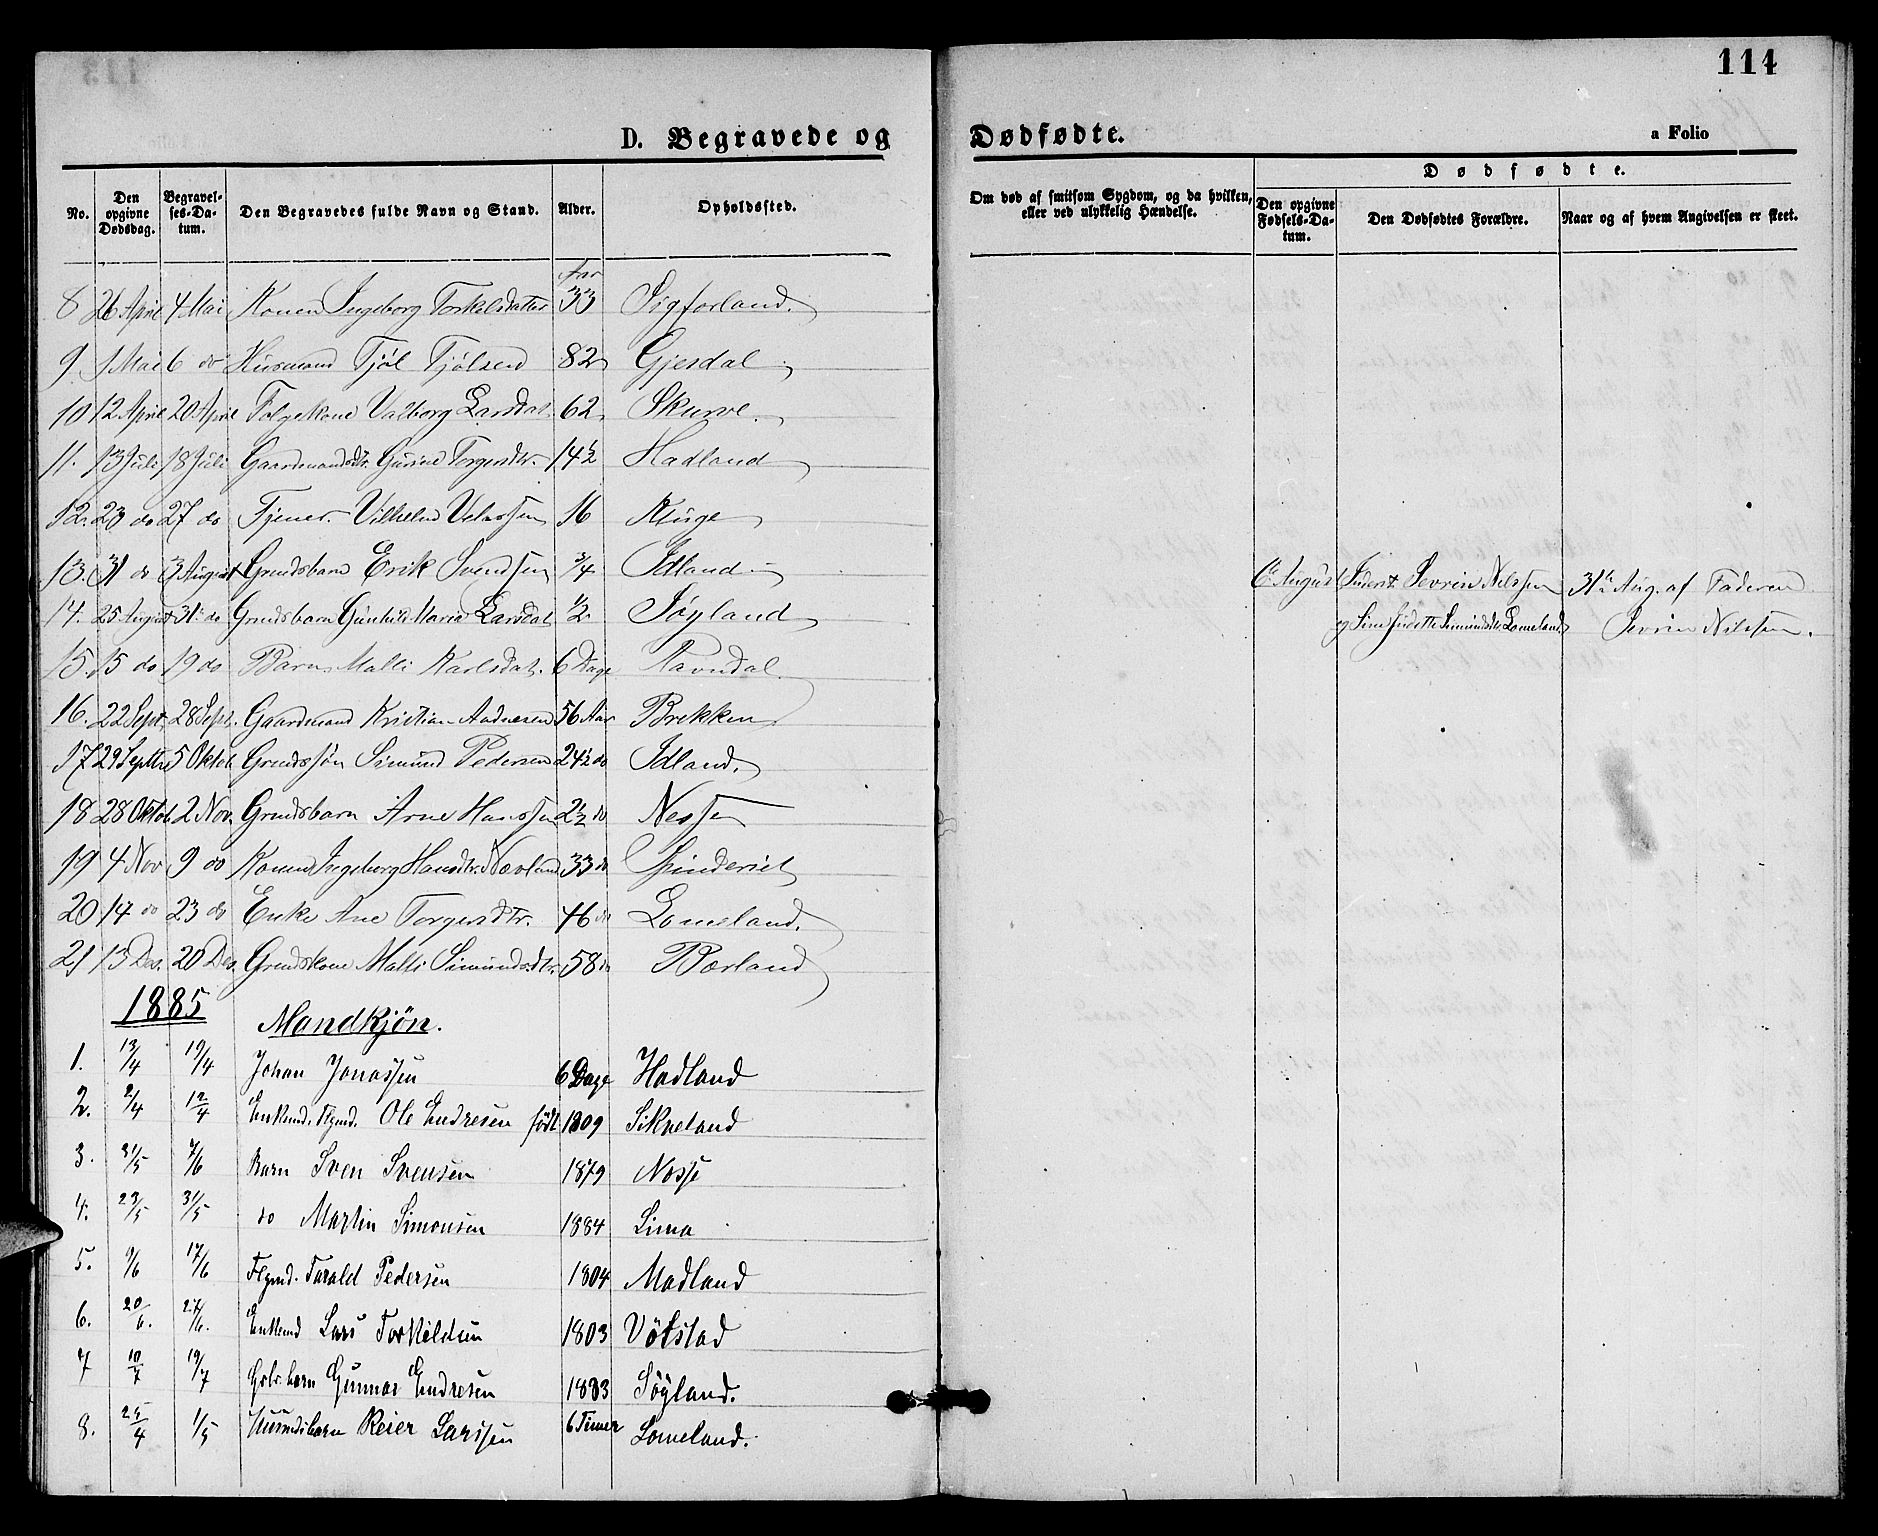 114
D. Begravede og Dødfødte.
a Folio
No. Den opgivne Dødsdag. Begravelses-Datum. Den Begravedes fulde Navn og Stand. Alder. Opholdssted. Om død af smitsom Sygdom, og da hvilken, eller ved ulykkelig Hændelse. Dødfødte. Den opgivne Fødsels-Datum. Den Dødfødtes Forældre. Naar og af hvem Angivelsen er skeet.
Aar
8 26 April 4 Mai Konen Ingeborg Torkelsdatter 33 Sigforland.
9. 1 Mai 6 do Husmand Tjøl Tjølsen 82 Gjesdal
10 12 April 20 April Følgekone Valborg Larsdat. 62 Skurve.
11. 13 Juli 18 Juli Gaardmandsdtr. Gurine Torgersdtr. 14½ Hadland
12. 23 do 27 do Tjener. Vilhelm 16 Kluge
13. 31 do 3 August Grmdsbarn Erik Svendsen ¾ Idland
6te August Inderst Sevrin Nilssen 31te Aug. af Faderen
14. 25 August 31te do Grmdsbarn Gunhild Maria Larsdat ½ Søyland
og Simundsdtr Lomeland Sevrin Nilssen.
15. 15 do 19 do Barn Malli Karlsdat. 6 Dage Ravndal.
16. 22 Sept. 28 Sept. Gaardmand Kristian Aadnesen 56 Aar Brekken
17 29 Septbr 5 Oktob. Grmdssøn Simund Pedersen 24½ do Idland.
18 28 Oktob 2 Nov. Grmdsbarn Arne Hanssen 2½ do Nesse
19 4 Nov 9 do Konen Ingeborg Hansdtr. Nævland 33 do Spinderiet
20 14 do 23 do Enke Ane Torgersdtr. 46 do Lomeland.
21 13 Des. 20 Des. Grmdskone Malli Simundsdtr. 58 do Bærland
1885 Mandkjøn.
1. 13/4 19/4 Johan Jonassen 6 Dage Hadland
2. 2/4 12/4 Enkemd. Flgmd. Ole Endresen født 1809 Sikveland
3. 31/5 7/6 Barn Sven Svensen 1879 Nesse
4. 23/5 31/5 do Martin Simonsen 1884 Lima
5. 9/6 17/6 Flgmd. Tarald Pedersen 1804 Madland
6. 20/6. 27/6. Enkemd Lars Torkildsen 1803 Vølstad
7 10/7 19/7 Gbr.barn Gunnar Endresen 1883 Søyland.
8. 25/4 1/5 Husmdsbarn Reier Larssen 6 Timer Lomeland.